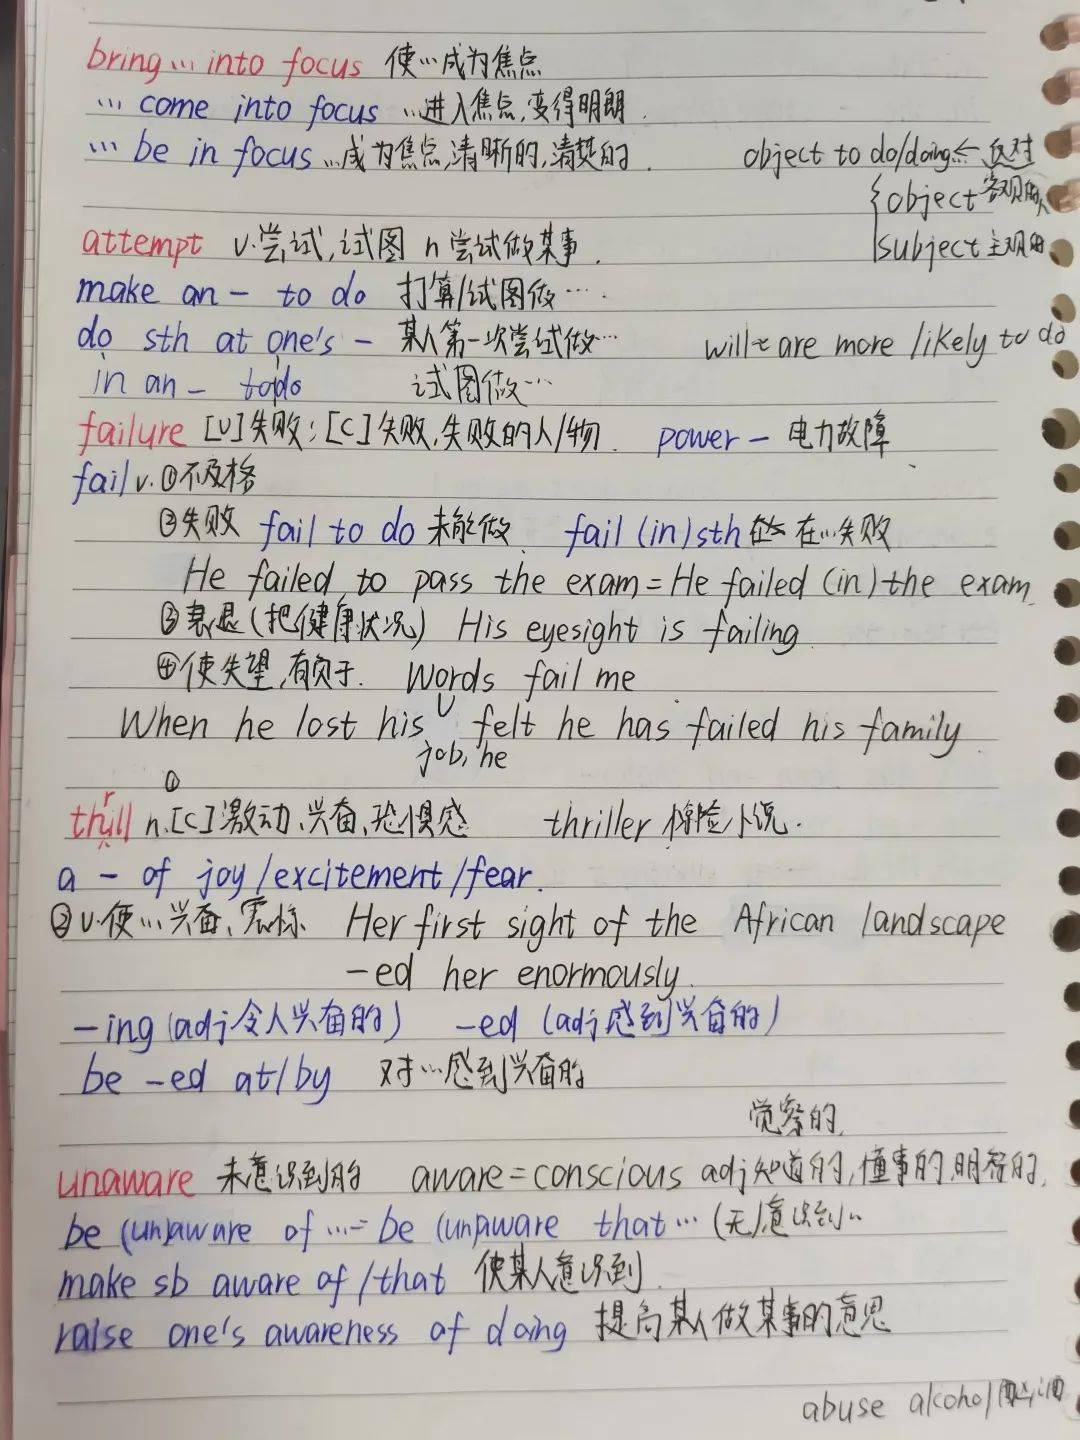 bring … into focus 使…成为焦点
… come into focus …进入焦点,变得明朗.
… be in focus …成为焦点,清晰的,清楚的. object to do/doing← 反对
{object 客观的
attempt v.尝试,试图 n 尝试做某事. subject 主观的
make an — to do 打算/试图做….
do sth at one's — 某人第一次尝试做… will are more likely to do
in an — to do 试图做…
failure [U]失败; [C]失败,失败的人/物. power — 电力故障
fail v. ①不及格
②失败 fail to do 未能做. fail (in) sth 在…失败
He failed to pass the exam = He failed (in) the exam.
③衰退(把健康状况) His eyesight is failing.
④使失望,有负于. Words fail me
When he lost his job, he felt he has failed his family.
thrill n.①[C]激动、兴奋、恐惧感 thriller 惊险小说.
a — of joy/excitement/fear.
②v.使…兴奋、震惊 Her first sight of the African landscape
—ed her enormously.
—ing (adj 令人兴奋的) —ed (adj 感到兴奋的)
be —ed at/by 对…感到兴奋的
觉察的,
unaware 未意识到的 aware = conscious adj 知道的,懂事的,明智的,
be (un)aware of … = be (un)aware that … (无)意识到…
make sb aware of/that 使某人意识到.
raise one's awareness of doing 提高某人做某事的意思
abuse alcohol